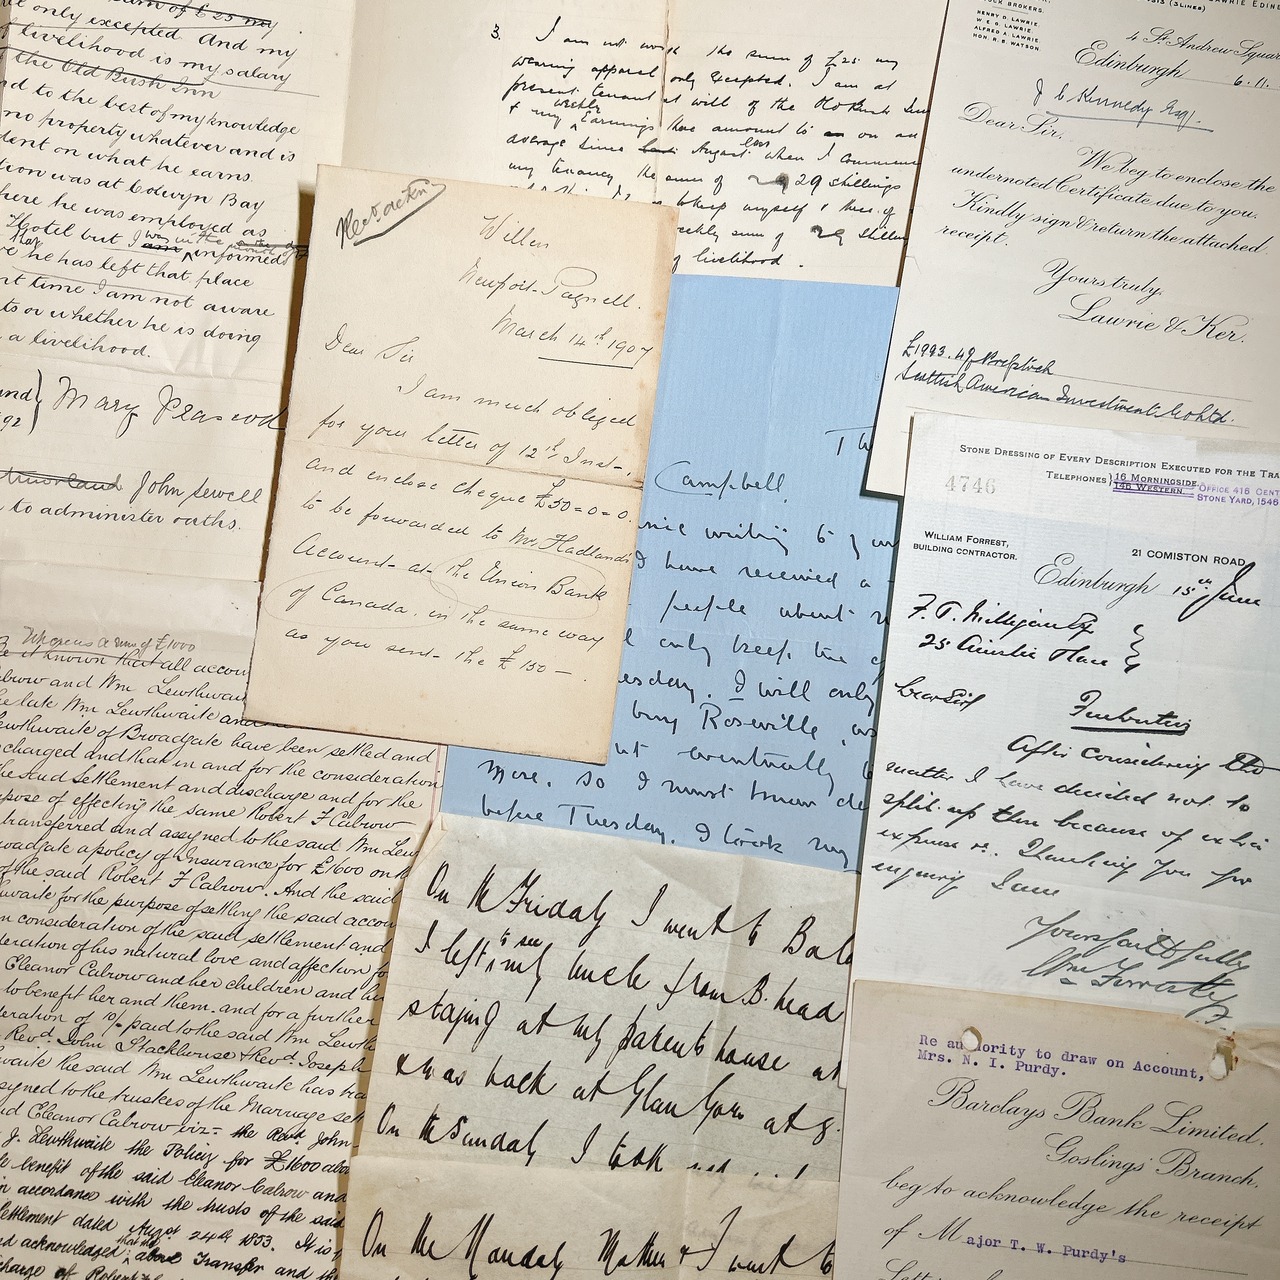 sum of £25 my
only excepted. And my
livelihood is my salary
the Old Bush Inn
nd to the best of my knowledge
no property whatever and is
dent on what he earns.
tion was at Colwyn Bay
here he was employed as
Hotel but I am informed
he has left that place
nt time I am not aware
ts or whether he is doing
a livelihood.
Mary
John Sewell
to administer oaths.
3. I am not worth the sum of £25 my
wearing apparel only excepted. I am at
present tenant at will of the Old Bush Inn
& my weekly earnings have amounted to on an
average since last August when I commenced
my tenancy the sum of 29 shillings
keep myself & three of
weekly sum of 29 shillings
of livelihood.
Willen
Newport-Pagnell.
March 14th 1907
Dear Sir
I am much obliged
for your letter of 12th Inst-,
and enclose cheque £50=0=0.
to be forwarded to Mr. Hadland's
Account- at- the Union Bank
of Canada, in the same way
as you sent- the £150-
LAWRIE EDIN
STOCK BROKERS.
HENRY D. LAWRIE.
W. E. G. LAWRIE.
ALFRED A. LAWRIE.
HON. R. B. WATSON.
4 St. Andrew Square
Edinburgh 6.11.
J C Kennedy Esq.
Dear Sir,
We beg to enclose the
undernoted Certificate due to you.
Kindly sign & return the attached
receipt.
Yours truly,
Lawrie & Ker.
Scottish American Investment Co Ltd.
Campbell.
writing to you
I have received a
people about
I only keep the
Tuesday. I will only
buy Roseville, as
eventually
more, so I must know
before Tuesday. I took my
STONE DRESSING OF EVERY DESCRIPTION EXECUTED FOR THE TRA
4746
TELEPHONES 16 MORNINGSIDE
146 WESTERN
OFFICE 416 CENT
STONE YARD, 1546
WILLIAM FORREST,
BUILDING CONTRACTOR.
21 COMISTON ROAD,
Edinburgh 15th June
F. T. Milligan Esq
25 Ainslie Place
Dear Sir
After considering the
matter I have decided not to
split up this because of extra
expense &c. Thanking you for
enquiry I am
Yours faithfully
Wm Forrest
Whereas a sum of £1000
Be it known that all accou
Calrow and Wm Lewthwai
the late Wm Lewthwaite and
Lewthwaite of Broadgate have been settled and
charged and that in and for the consideration
the said settlement and discharge and for the
pose of effecting the same Robert F Calrow
transferred and assigned to the said Wm Lew
oadgate a policy of Insurance for £1600 on th
of the said Robert F Calrow. And the said
waite for the purpose of settling the said accou
n consideration of the said settlement and
deration of his natural love and affection for
Eleanor Calrow and her children and
to benefit her and them, and for a further
eration of 10/- paid to the said Wm Lewth
Revd. John Stackhouse & Revd. Joseph
waite the said Wm Lewthwaite has tra
signed to the trustees of the Marriage set
nd Eleanor Calrow viz- the Revd. John
J. Lewthwaite the Policy for £1600 abo
benefit of the said Eleanor Calrow and
in accordance with the trusts of the said
settlement dated August 24th 1853. It is
acknowledged that the above Transfer and the
charge of Robert
On the Friday I went to
I left to see my uncle from B. head
staying at my parents house
was back at
On the Sunday I took
On the Monday Mother & I went to
Re authority to draw on Account,
Mrs. N. I. Purdy.
Barclays Bank Limited,
Goslings' Branch,
beg to acknowledge the receipt
of Major T. W. Purdy's